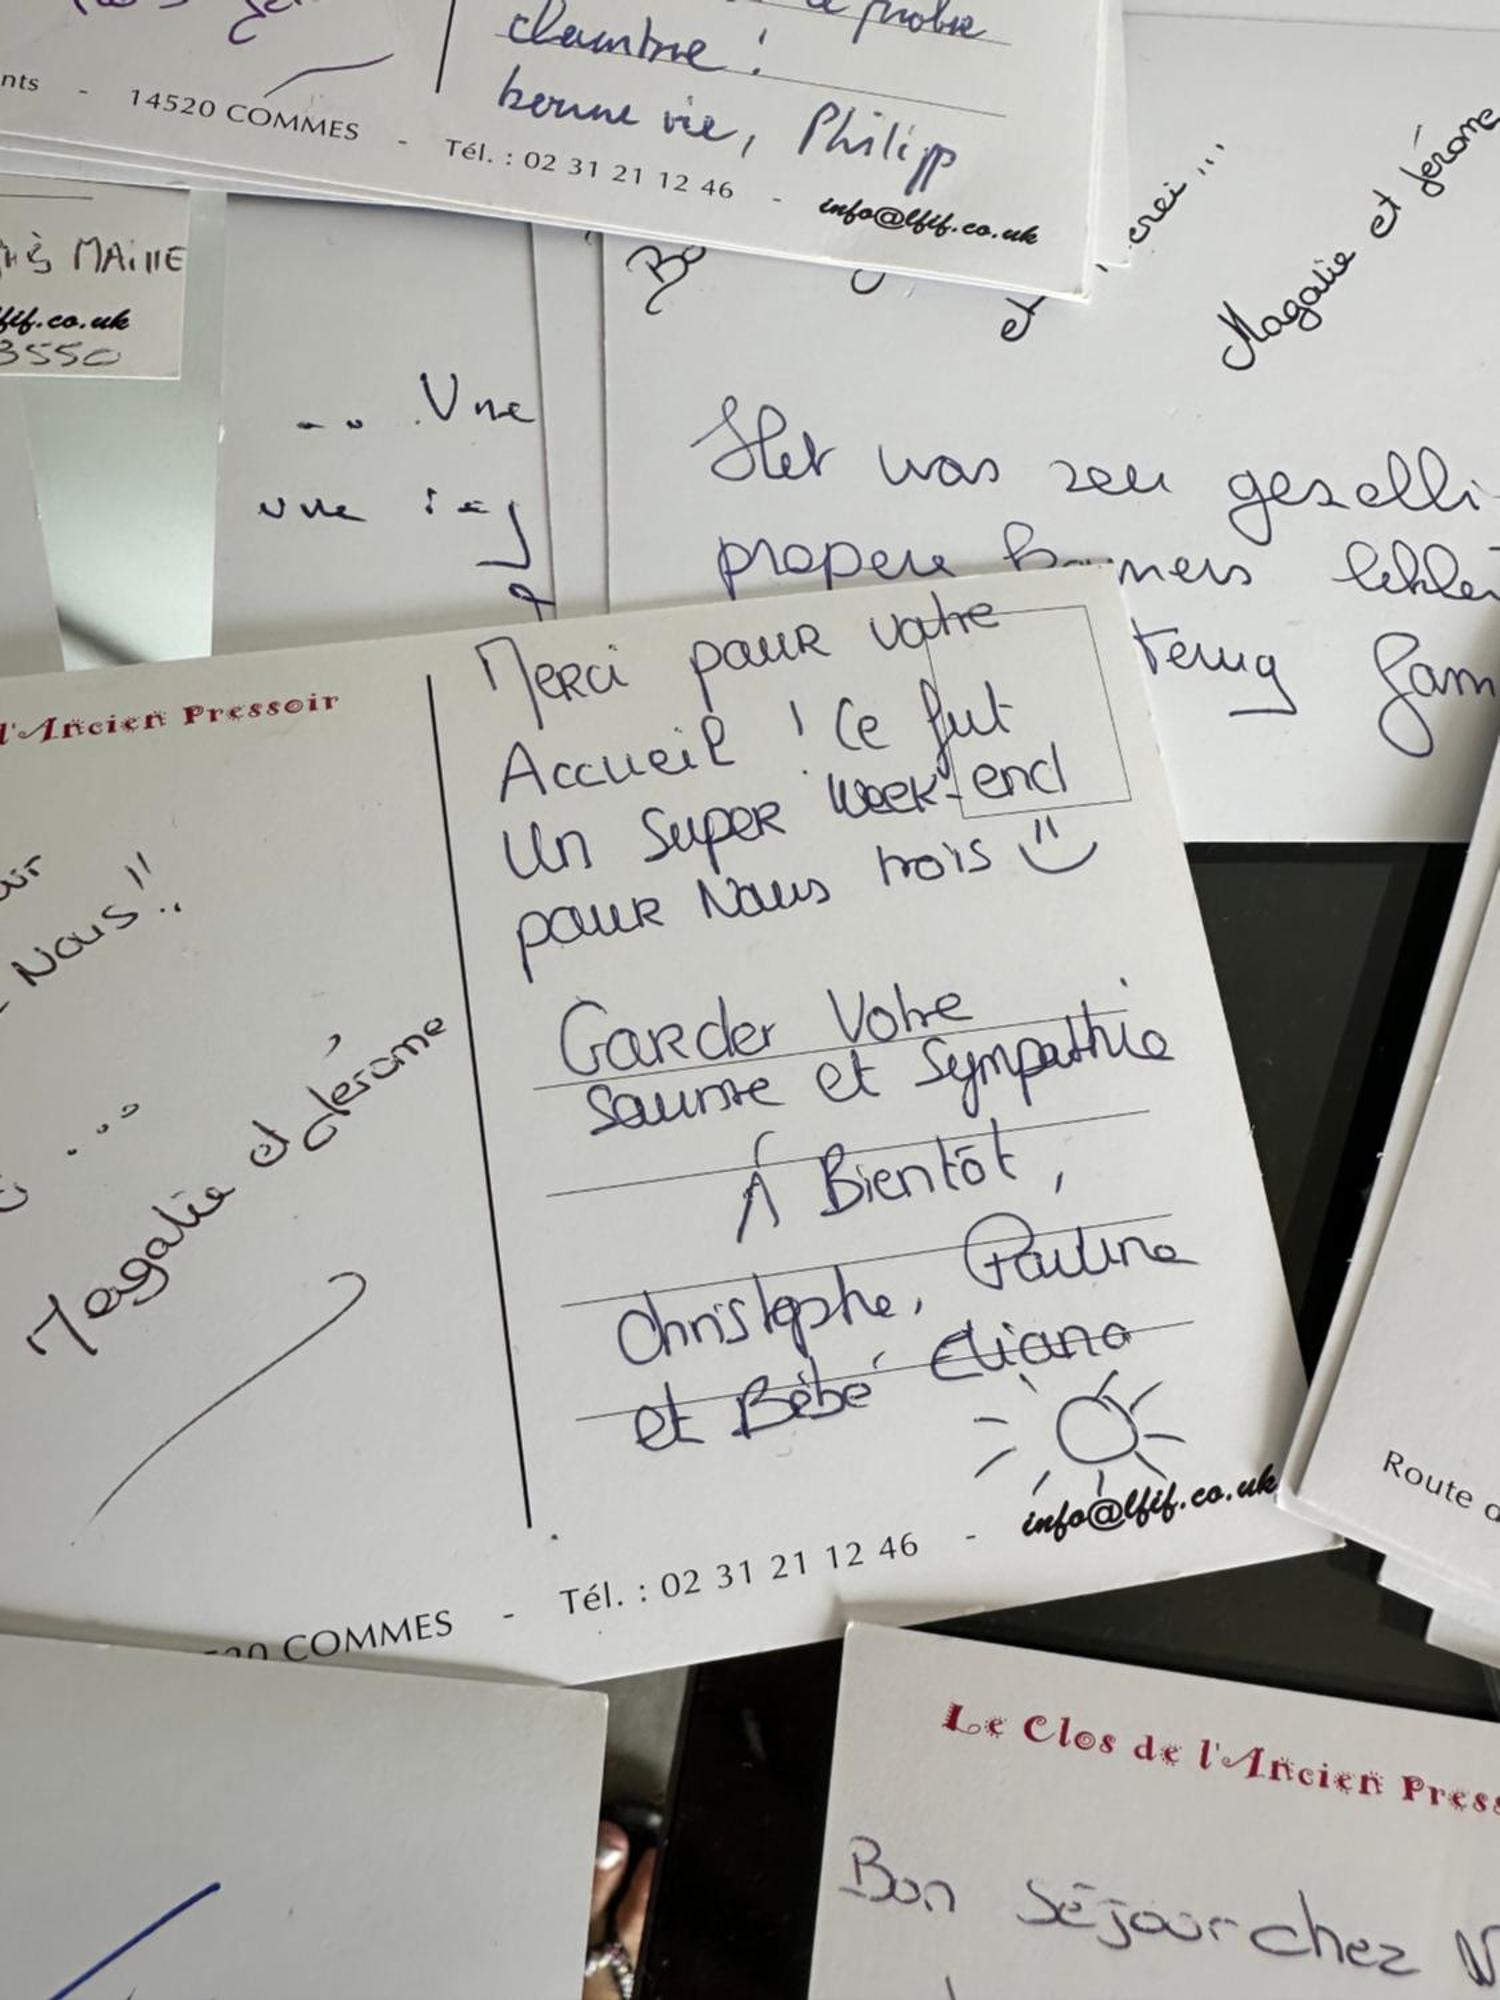 probre
chambre !
bonne vie, Philipp
nts - 14520 COMMES - Tél. : 02 31 21 12 46 - info@lfif.co.uk
MAIllE
fif.co.uk
3550
... Une
une
et
erci ...
Magalie et Jérome
Het was zeer geselli
propere
mers
terug fam
l'Ancien Pressoir
Nous !!
...
Magalie et Jérome
Merci pour votre
Accueil ! Ce fut
Un Super week-end
pour Nous trois
Garder Votre
Sourire et Sympathie
À Bientôt,
Christophe, Pauline
et Bébé Eliano
info@lfif.co.uk
20 COMMES - Tél. : 02 31 21 12 46 -
Route d
Le Clos de l'Ancien Press
Bon Séjour chez N